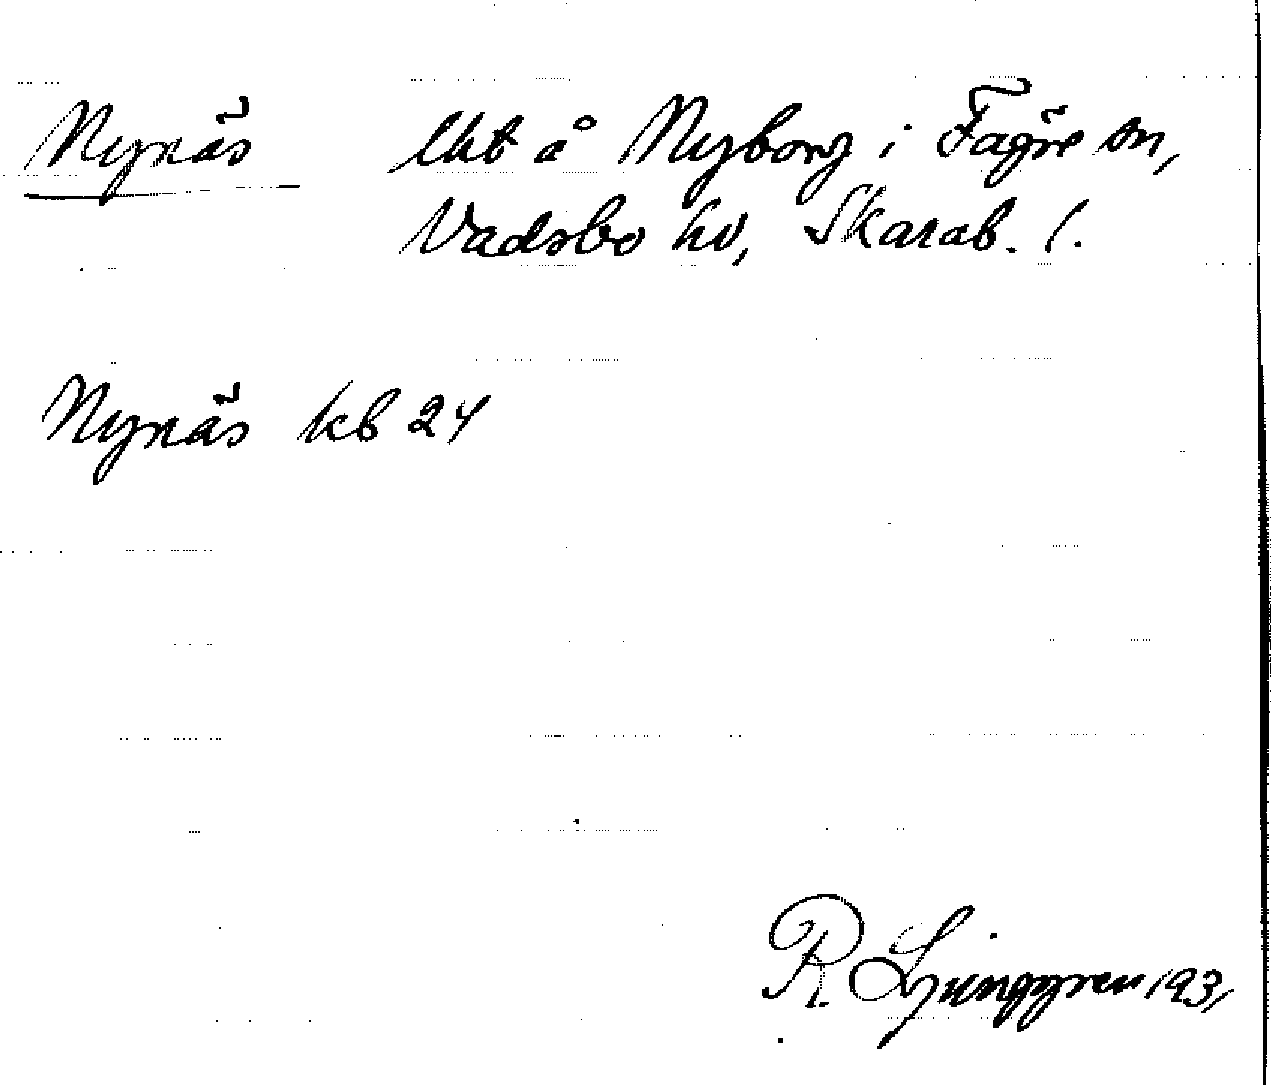 Nynäs lht å Nyborg i Fägre sn,
Vadsbo hd, Skarab. l.
Nynäs kb 24
R. Ljunggren 1931